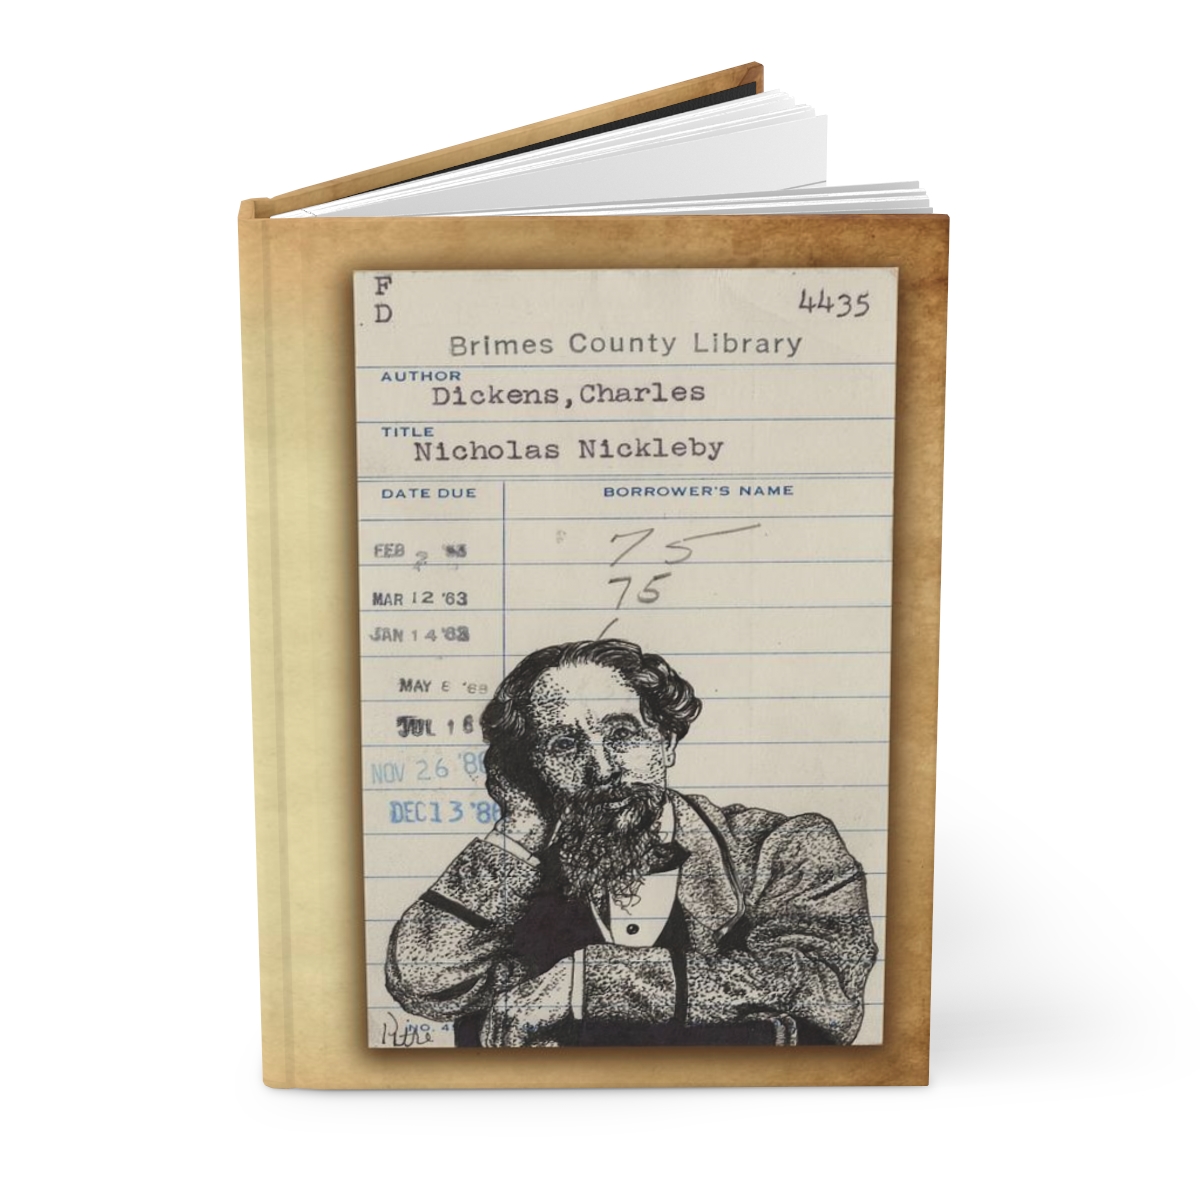 F
D
4435
Brimes County Library
AUTHOR
Dickens,Charles
TITLE
Nicholas Nickleby
DATE DUE BORROWER'S NAME
FEB 2 75
MAR 12 '63 75
JAN 14 '63
MAY 6 '69
JUL 16
NOV 26 '86
DEC 13 '86
NO. 4